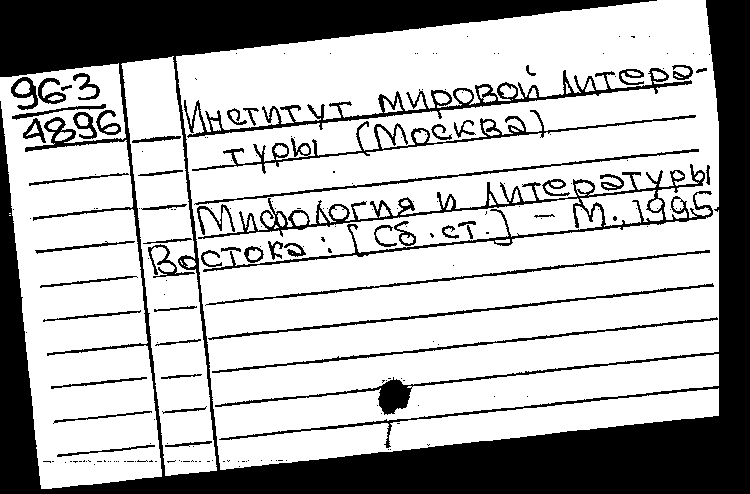 96-3
4896
Институт мировой литера-
туры (Москва)
Мифология и литературы
Востока : [Сб. ст.] – М., 1995.